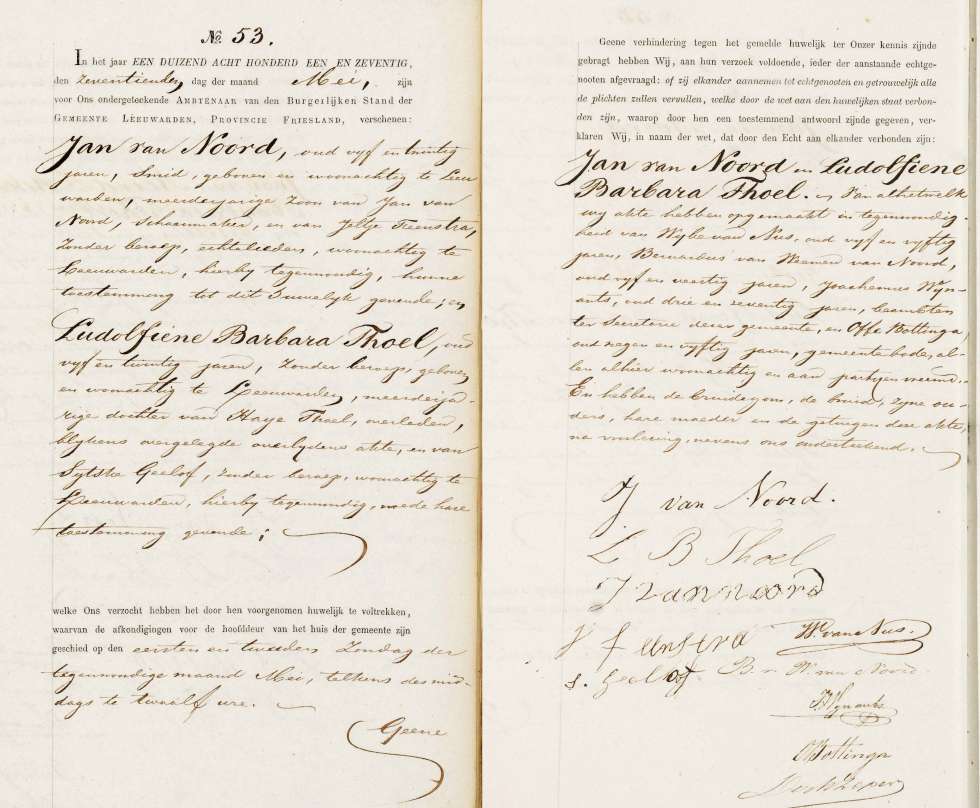 No 53.
In het jaar EEN DUIZEND ACHT HONDERD EEN EN ZEVENTIG,
den zeventienden dag der maand Mei, zijn
voor Ons ondergeteekende AMBTENAAR van den Burgerlijken Stand der
GEMEENTE LEEUWARDEN, PROVINCIE FRIESLAND, verschenen:
Jan van Noord, oud vyf en twintig
jaren, Smid, geboren en woonachtig te Leeu
warden, meerderjarige zoon van Jan van
Noord, schoenmaker, en van Jeltje Feenstra,
zonder beroep, echtelieden, woonachtig te
Leeuwarden, hierby tegenwoordig, hunne
toestemming tot dit huwelyk gevende; en
Ludolfiene Barbara Thoel, oud
vyf en twintig jaren, zonder beroep, geboren
en woonachtig te Leeuwarden, meerderja-
rige dochter van Haye Thoel, overleden,
blykens overgelegde overlydens akte, en van
Sytske Geelof, zonder beroep, woonachtig te
Leeuwarden, hierby tegenwoordig, mede hare
toestemming gevende;
welke Ons verzocht hebben het door hen voorgenomen huwelijk te voltrekken,
waarvan de afkondigingen voor de hoofddeur van het huis der gemeente zijn
geschied op den eersten en tweeden Zondag der
tegenwoordige maand Mei, telkens des mid-
dags te twaalf ure.
Geene
Geene verhindering tegen het gemelde huwelijk ter Onzer kennis zijnde
gebragt hebben Wij, aan hun verzoek voldoende, ieder der aanstaande echtge-
nooten afgevraagd: of zij elkander aannemen tot echtgenooten en getrouwelijk alle
de plichten zullen vervullen, welke door de wet aan den huwelijken staat verbon-
den zijn, waarop door hen een toestemmend antwoord zijnde gegeven, ver-
klaren Wij, in naam der wet, dat door den Echt aan elkander verbonden zijn:
Jan van Noord en Ludolfiene
Barbara Thoel. Van al hetwelk
wy akte hebben opgemaakt in tegenwoordig
heid van Wybe van Nus, oud vyf en vyftig
jaren, Bernardus van Weemen van Noord,
oud vyf en veertig jaren, Joachemus Wyn-
ants, oud drie en zeventig jaren, beambten
ter Secretarie dezer gemeente, en Offe Bottinga
oud negen en vyftig jaren, gemeentebode, al-
len alhier woonachtig en aan partyen vreemd.
En hebben de bruidegom, de bruid, zyne ou-
ders, hare moeder en de getuigen deze akte,
na voorlezing, nevens ons onderteekend.
J van Noord.
L B Thoel
J van noord
J feenstra
W. van Nus.
S. Geelof
B. v. W. van Noord
J Wynants
O Bottinga